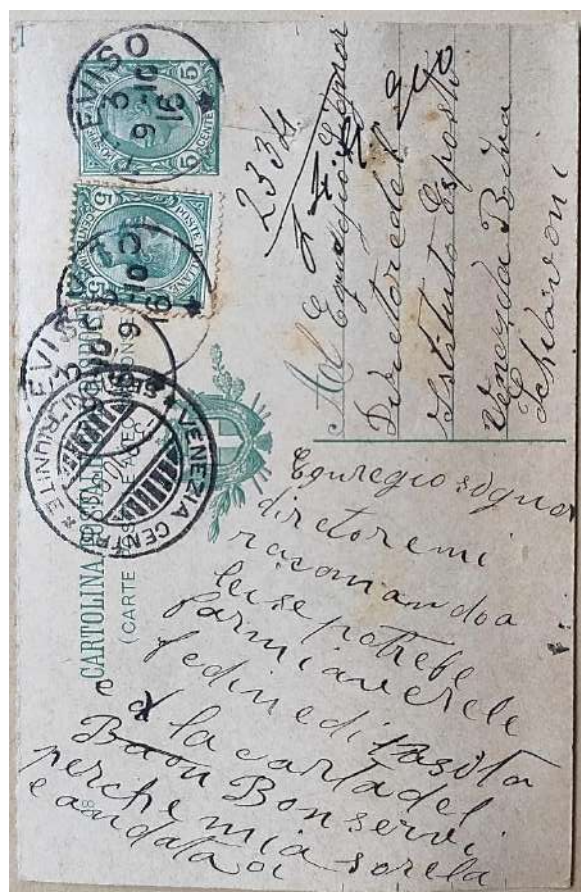 CARTOLINA POSTALE
(CARTE POSTALE
5 CENT. 5
5 POSTE ITALIANE 5
TREVISO
3-10
9
16
TREVISO
9-10
16
VENEZIA CENTRO
2334
Al Egregio Signor
Diretore del
Istituto Esposti
Venezia Riva
Schiavoni
Egregio signor
diretore mi
racomando a
lei se potrebe
farmi avere le
fedine di nascita
e la carta del
Bon Bonservi
perche mia sorela
e andata a